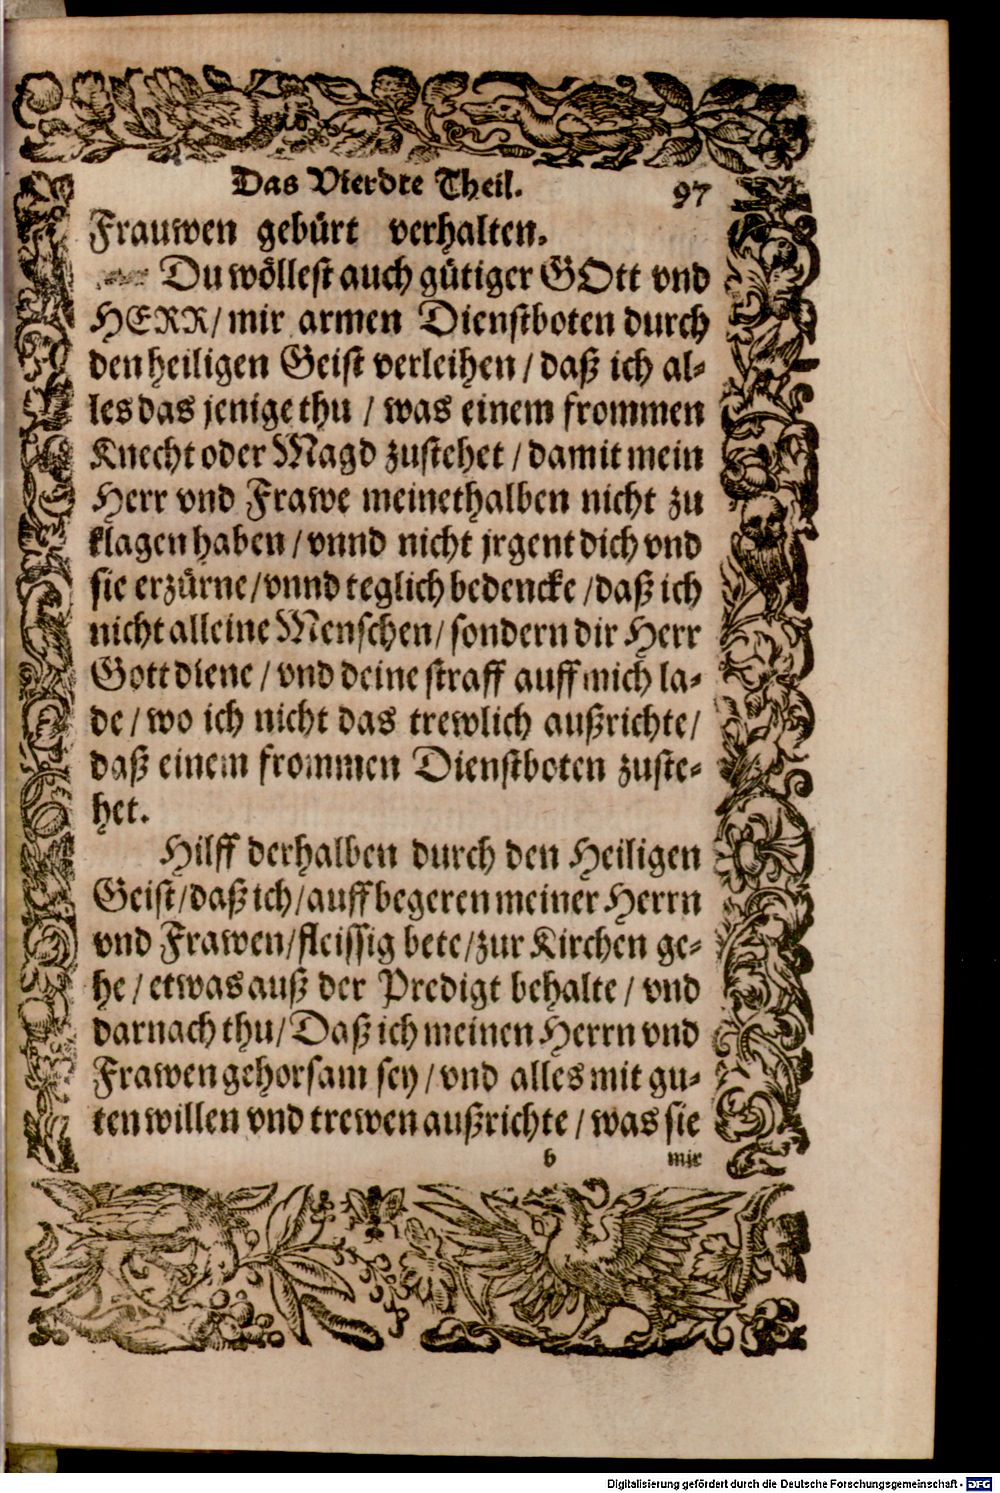 Das Vierdte Theil. 97
Frauwen gebürt verhalten.
Du wöllest auch gütiger GOtt vnd
HERR/ mir armen Dienstboten durch
den heiligen Geist verleihen / daß ich al-
les das jenige thu / was einem frommen
Knecht oder Magd zustehet / damit mein
Herr vnd Frawe meinethalben nicht zu
klagen haben / vnnd nicht jrgent dich vnd
sie erzürne/vnnd teglich bedencke /daß ich
nicht alleine Menschen/ sondern dir Herr
Gott diene / vnd deine straff auff mich la-
de / wo ich nicht das trewlich außrichte/
daß einem frommen Dienstboten zuste-
het.
Hilff derhalben durch den Heiligen
Geist/daß ich/auff begeren meiner Herrn
vnd Frawen/fleissig bete/zur Kirchen ge-
he / etwas auß der Predigt behalte / vnd
darnach thu/ Daß ich meinen Herrn vnd
Frawen gehorsam sey / vnd alles mit gu-
ten willen vnd trewen außrichte / was sie
b mir
Digitalisierung gefördert durch die Deutsche Forschungsgemeinschaft - DFG